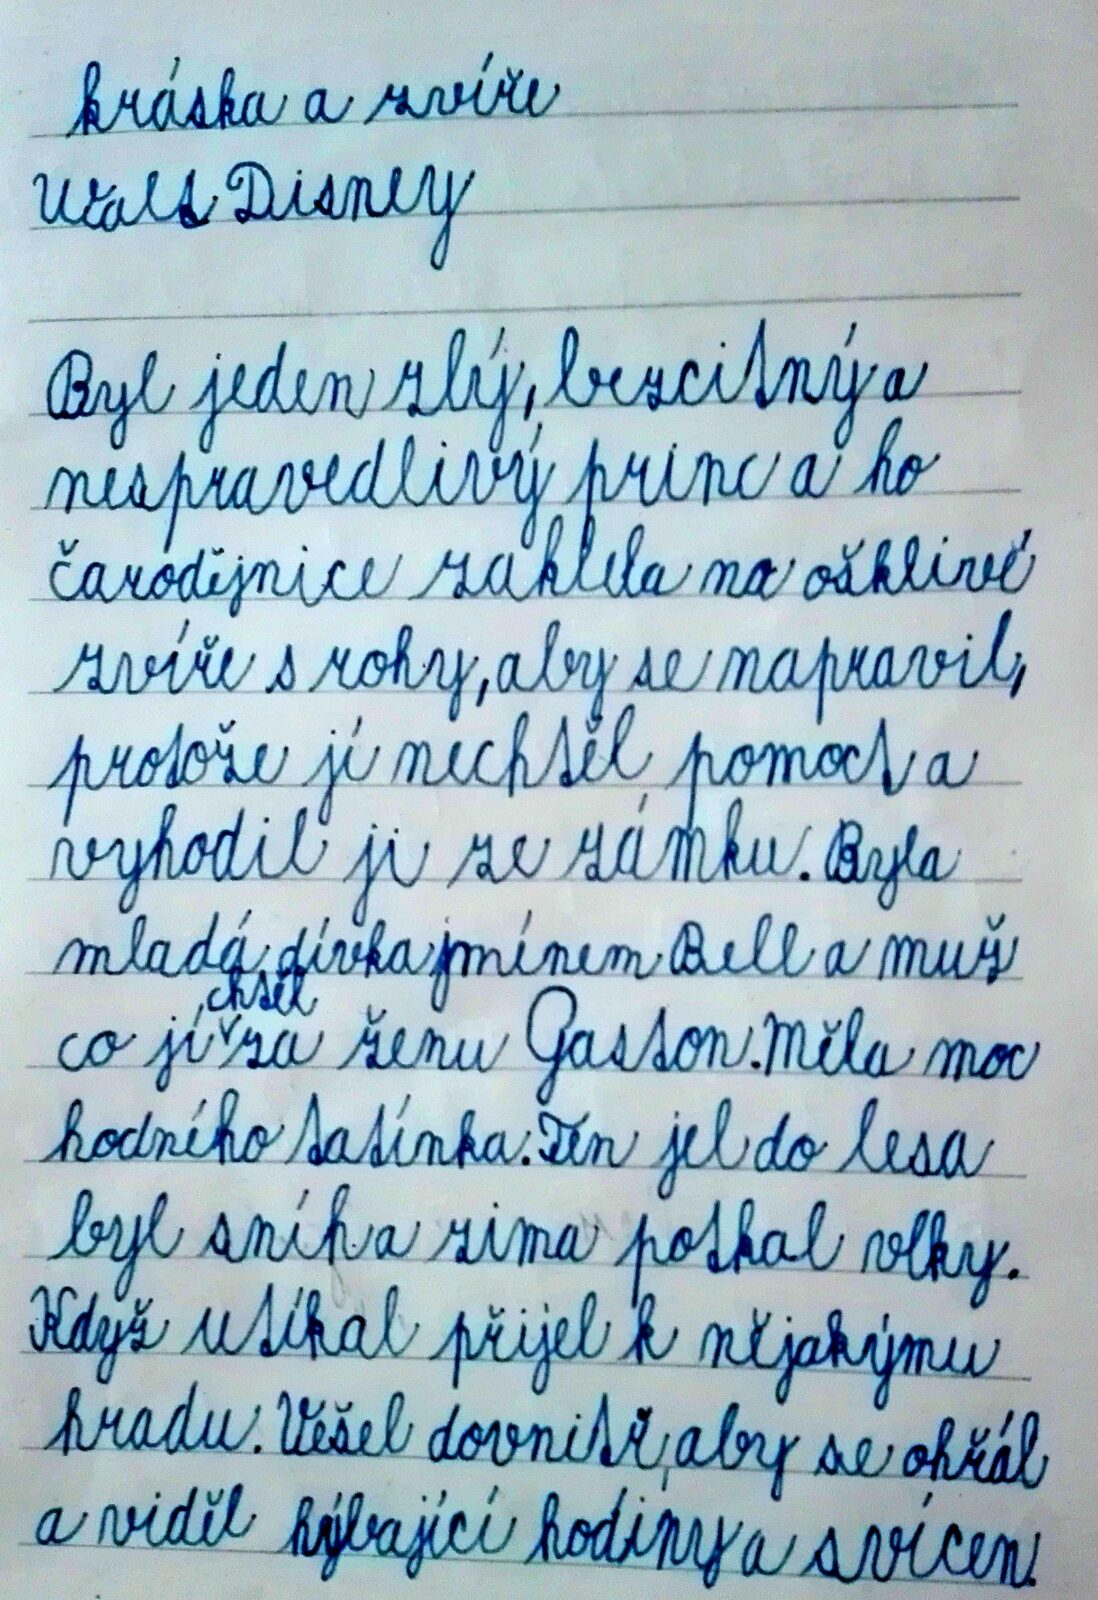 kráska a zvíře
Walt Disney
Byl jeden zlý, bezcitný a
nespravedlivý princ a ho
čarodějnice zaklela na ošklivé
zvíře s rohy, aby se napravil,
protože jí nechtěl pomoct a
vyhodil ji ze zámku. Byla
mladá dívka jménem Bell a muž
chtěl
co jí za ženu Gaston. Měla moc
hodného tatínka. Ten jel do lesa
byl sníh a zima potkal vlky.
Když utíkal přijel k nějakýmu
hradu. Vešel dovnitř, aby se ohřál
a viděl hýbající hodiny a svícen.